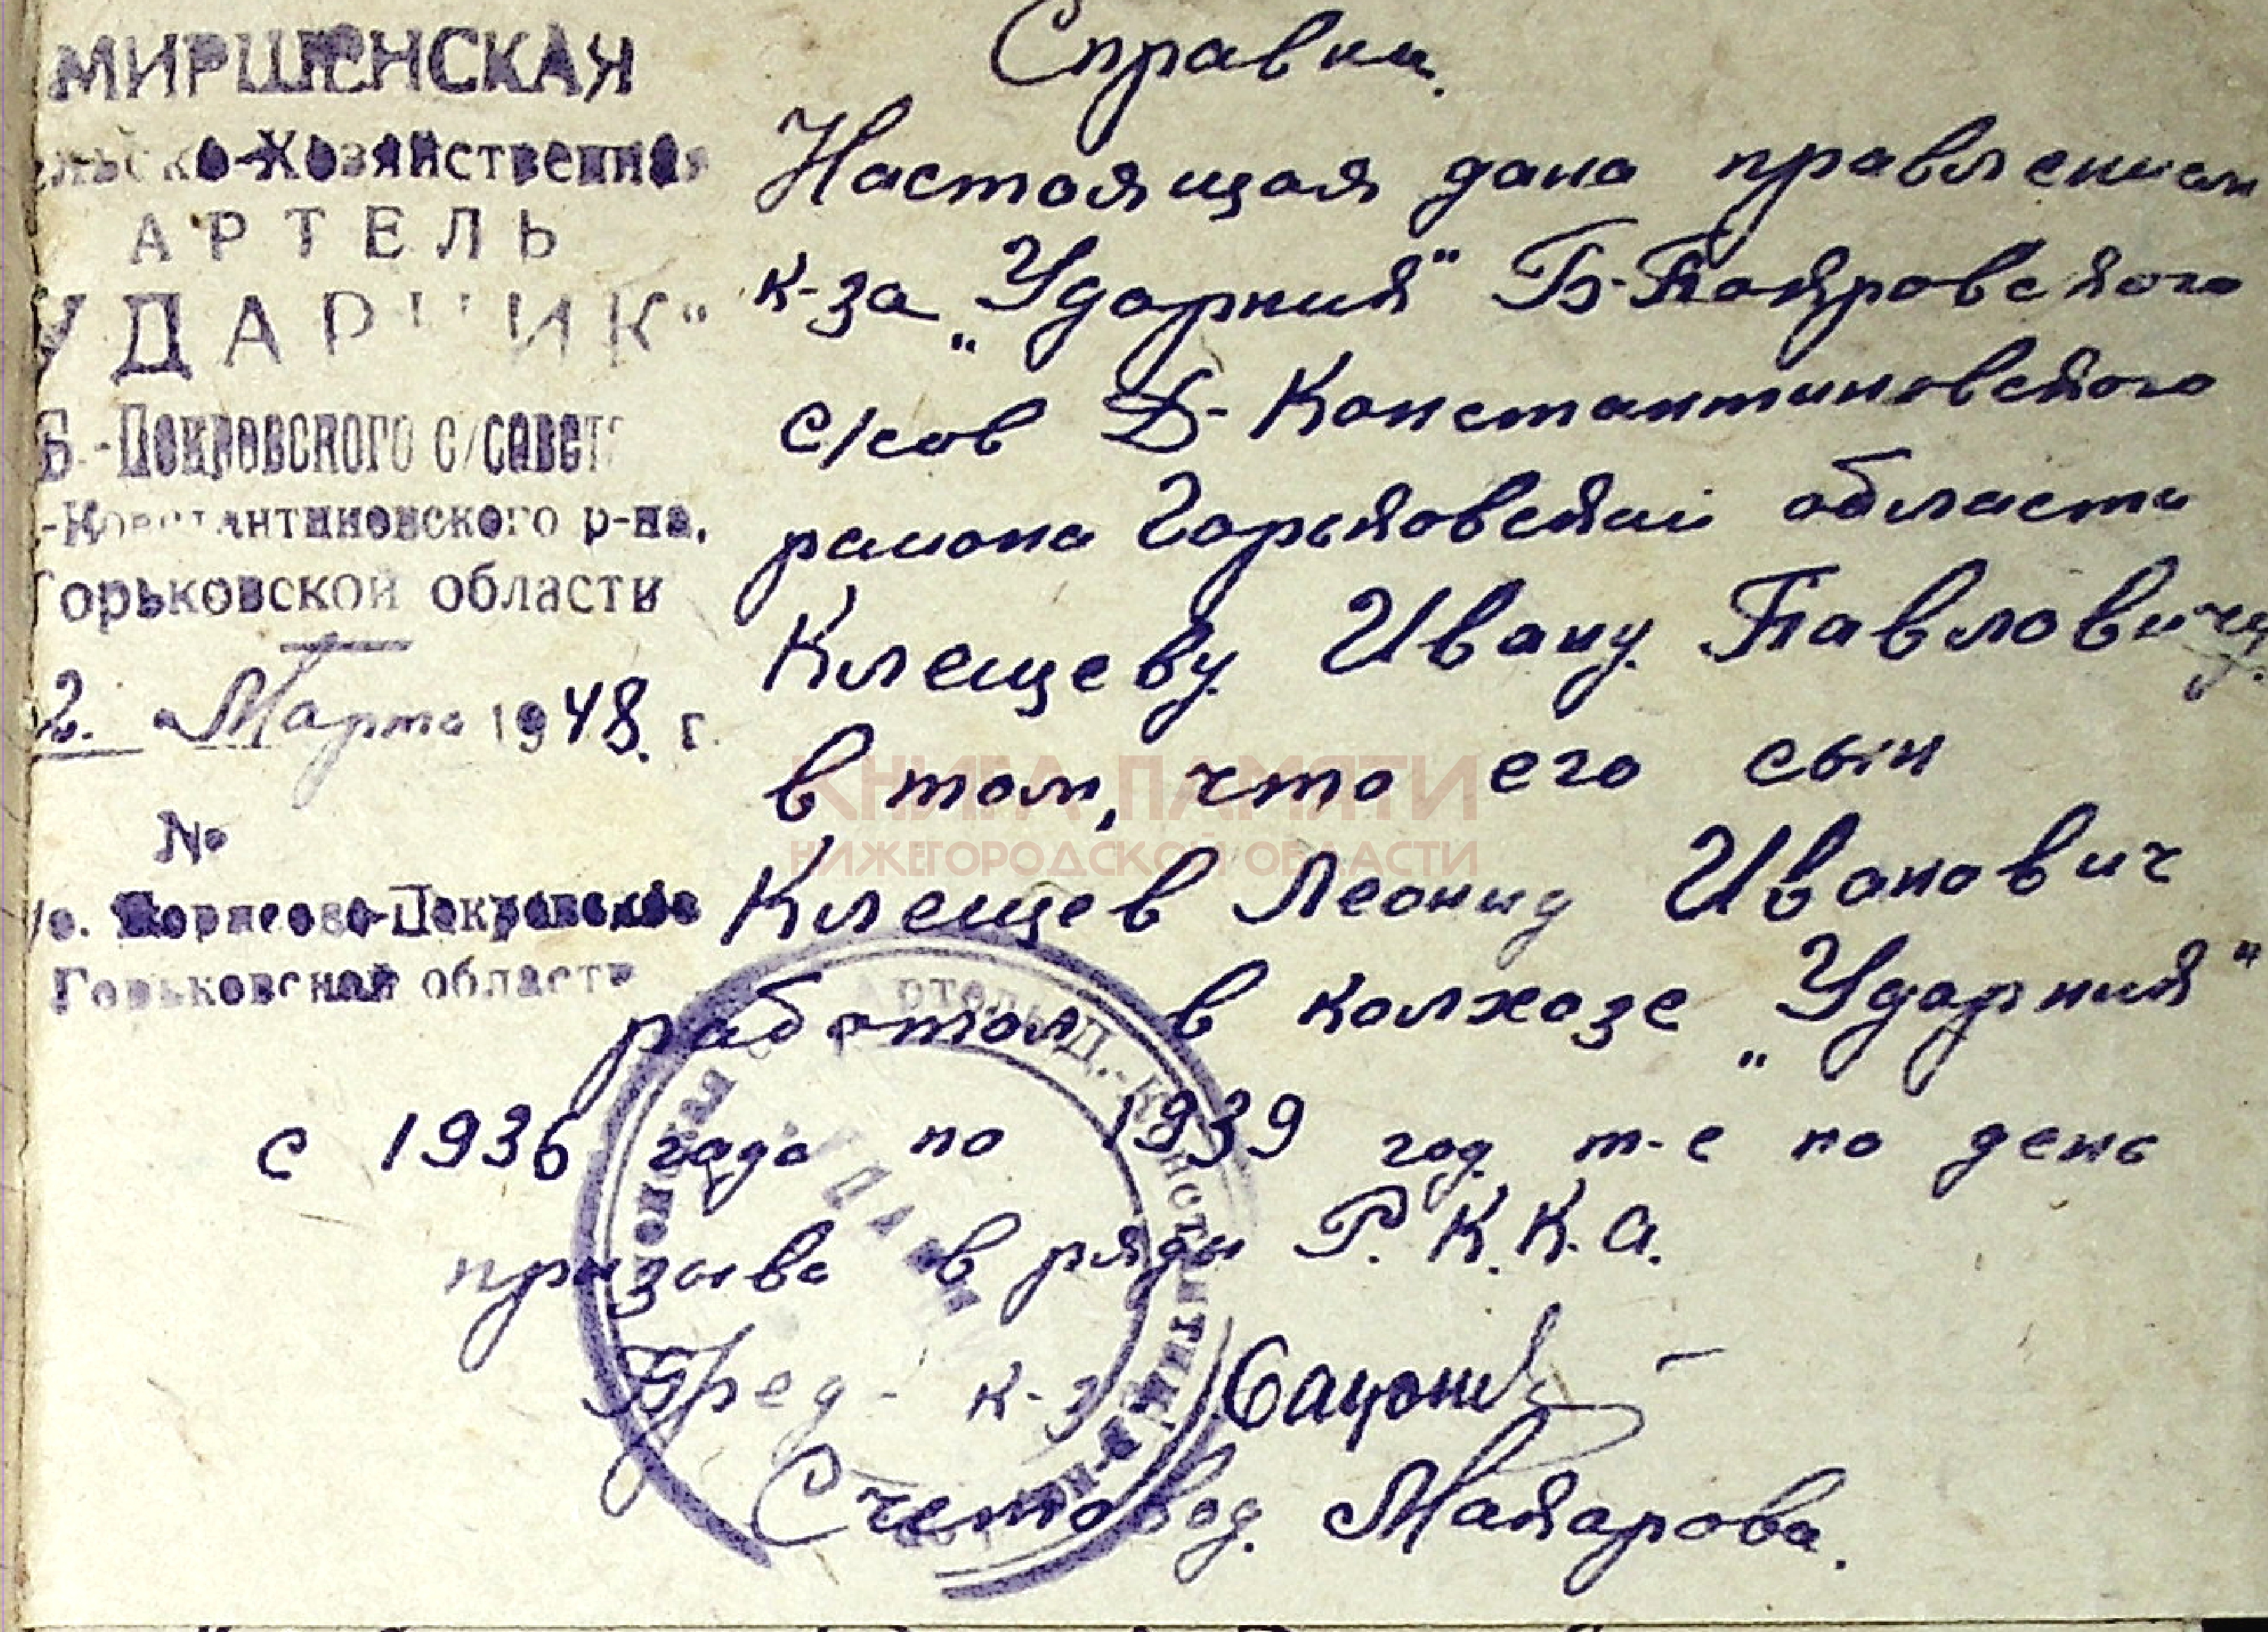 МИРШЕНСКАЯ
ельско-Хозяйственная
АРТЕЛЬ
УДАРНИК"
Б.-Покровского с/совета
-Константиновского р-на,
Горьковской области
2. Марта 1948. г.
№
Борисово-Покровское
Горьковской области
Справка.
Настоящая дана правлением
к-за „Ударник" Б-Покровского
с/сов Д-Константиновского
района Горьковской области
Клещеву Ивану Павловичу.
в том, что его сын
Клещев Леонид Иванович
работал в колхозе „Ударник"
с 1936 года по 1939 год т-е по день
призыва в ряды Р.К.К.А.
Пред- к-з
Счетовод. Макарова.
Артель Д.-Константин
КНИГА ПАМЯТИ
НИЖЕГОРОДСКОЙ ОБЛАСТИ